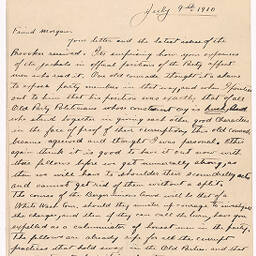 July 9th 1910
Friend Morgan:
Your letter and the latest issue of the
Brooker received. Its surprising how your exposure
of the jackals in official positions of the Party affect
men who read it. One old comrade thought it a shame
to expose party members in that way, and when I pointed
out to him that his position was exactly that of all
Old Party Politicians whose constant cry is
who stand together in giving each other good Characters
in the face of proof of their corruption, this old comrade
became agrieved and thought I was personal. Others
again think it is good to have it out now with
those fellows before we get numerically strong, as
then we will have to shoulder their scoundrelly acts
and cannot get rid of them without a split.
The course of the Berger Simons Crowd will be that of a
White Wash Crew, should they smile or courage to investigate
the charges, and then if they can call the turn, have you
expelled as a calumniator of honest men in the party.
The fellows are already ripe for all the corrupt
practices that hold sway in the Old Parties and that